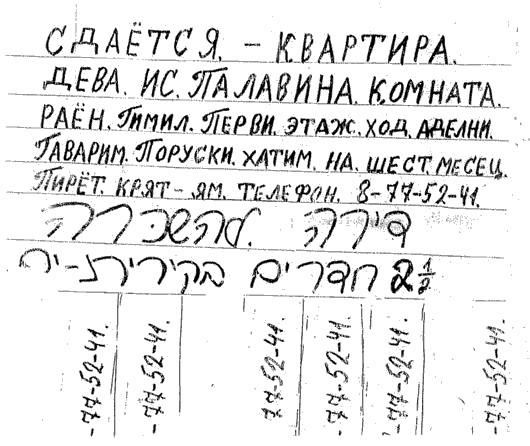 СДАЁТСЯ. – КВАРТИРА.
ДЕВА. ИС. ПАЛАВИНА. КОМНАТА.
РАЁН. ГИМИЛ. ПЕРВИ. ЭТАЖ. ХОД. АДЕЛНИ.
ГАВАРИМ. ПОРУСКИ. ХАТИМ. НА. ШЕСТ. МЕСЕЦ.
ПИРЁТ. КРЯТ-ЯМ. ТЕЛЕФОН. 8-77-52-41.
דירה להשכרה
2 1/2 חדרים בקירית-ים
-77-52-41.
-77-52-41.
77-52-41.
-77-52-41.
-77-52-41.
-77-52-41.